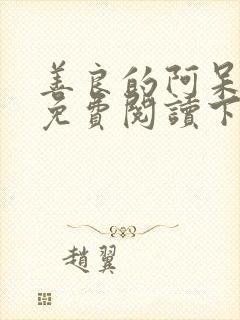 善良的阿呆
免費閱讀下
趙翼